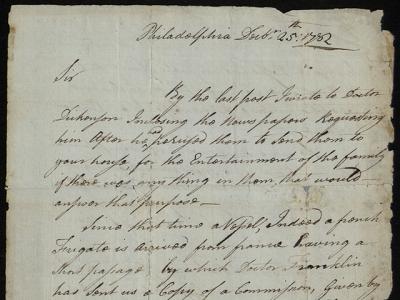 Philadelphia Decbr. 25th. 1782
Sir
By the last post I wrote to Doctor
Dickenson Inclosing the News papers Requesting
him After he perused them to Send them to
your house, for the Entertainment of the family
if there was any thing in them, that would
answer that purpose—
Since that time a Vessel, Indeed a french
Frugate is arrived from france having a
Short passage by which Doctor Franklin
has Sent us a Copy of a Commission, Given by